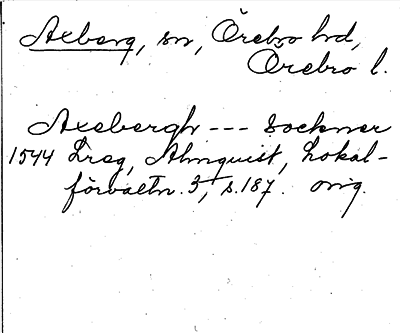 Axberg, sn, Örebro hd,
Örebro l.
Axebergh --- Sockner
1544 Dreg, Almquist, Lokal-
förvaltn. 3, s. 187. orig.